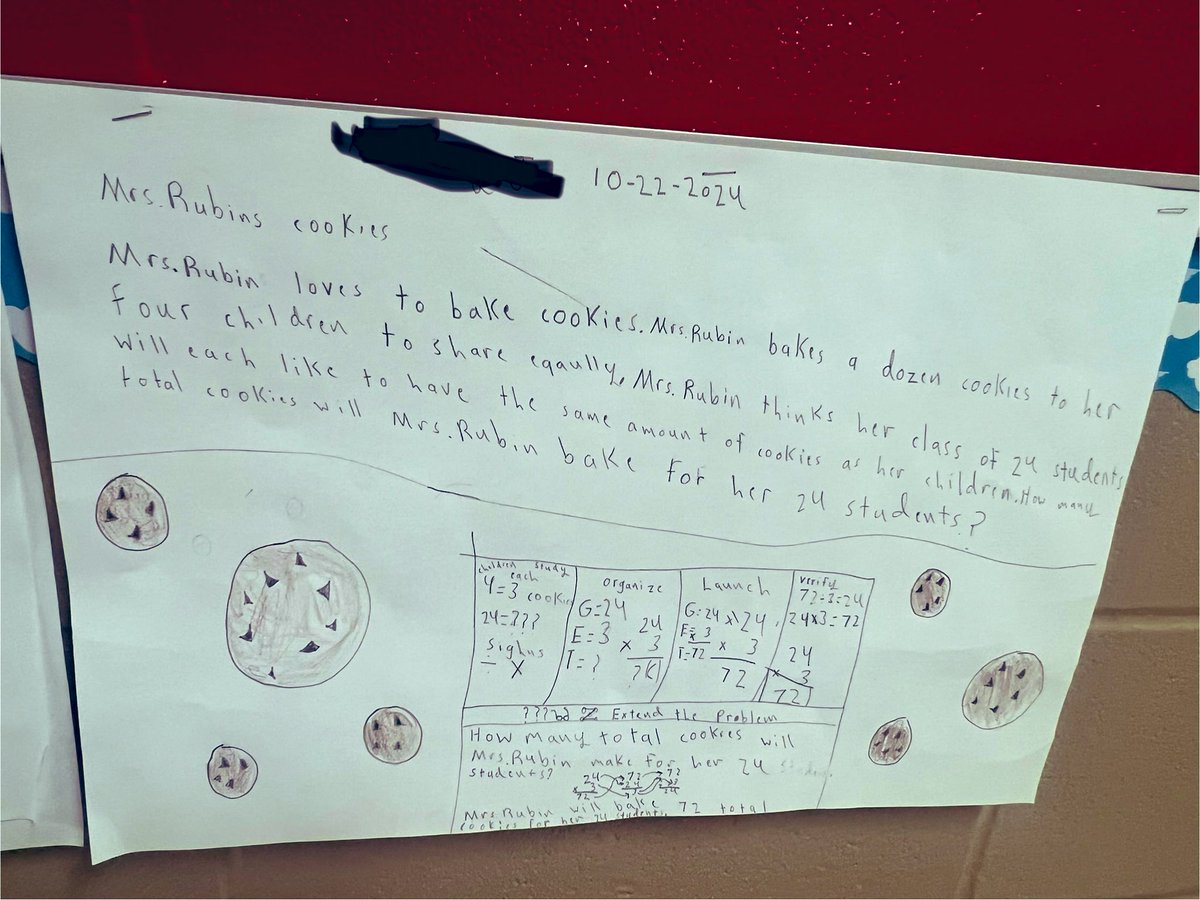 10-22-2024
Mrs.Rubins cookies
Mrs.Rubin loves to bake cookies. Mrs.Rubin bakes a dozen cookies to her
four children to share eqaully. Mrs.Rubin thinks her class of 24 students
will each like to have the same amount of cookies as her children. How many
total cookies will Mrs.Rubin bake for her 24 students?
children study
each
4=3 cookies
24=???
Sighns
÷ X
organize
G=24
E=3
T=?
24
x 3
Launch
G=24
E=3
T=72
24
x 3
72
verify
72÷3=24
24x3=72
24
x 3
72
Extend the Problem
How many total cookies will
Mrs.Rubin make for her 24
students?
24 72 72
72 24
Mrs.Rubin will bake 72 total
cookies for her 24 students.